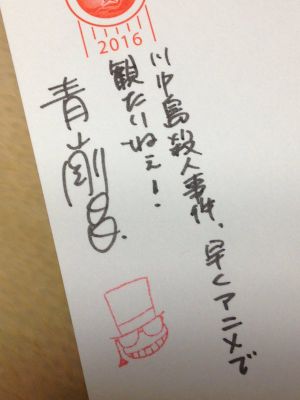 2016
川中島殺人事件、早くアニメで
観たいねぇ！
青山剛昌